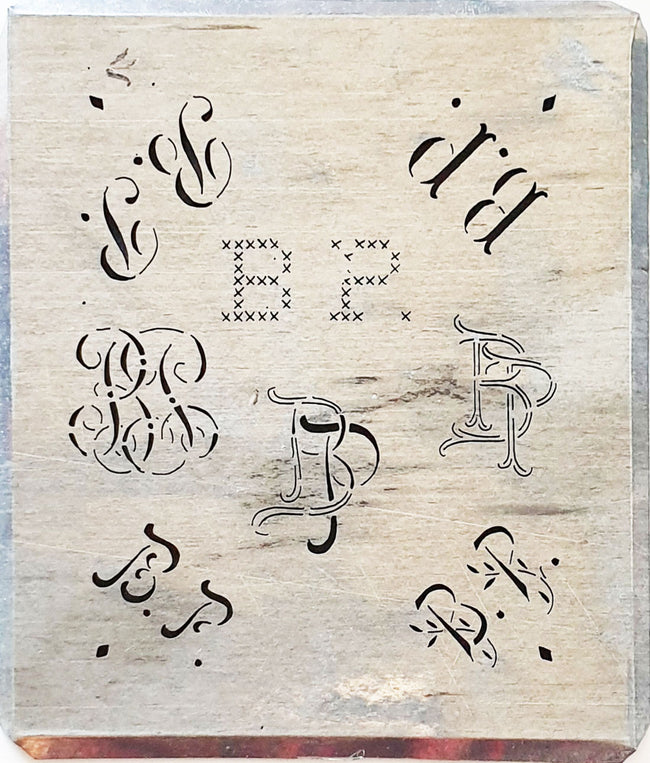 B.P.
B.P.
B P.
BP
BP
BP
B.P.
B.P.